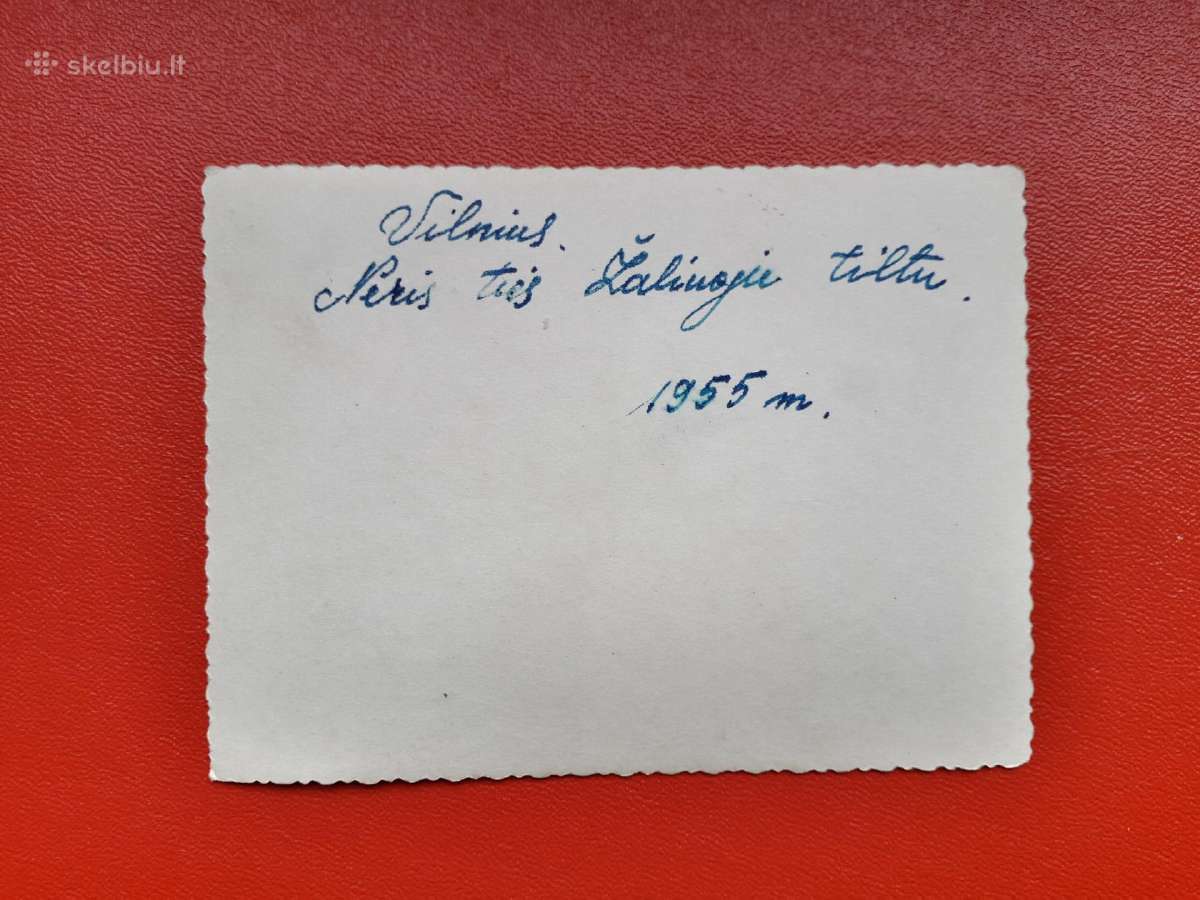 skelbiu.lt
Vilnius.
Neris ties Žaliuoju tiltu.
1955 m.